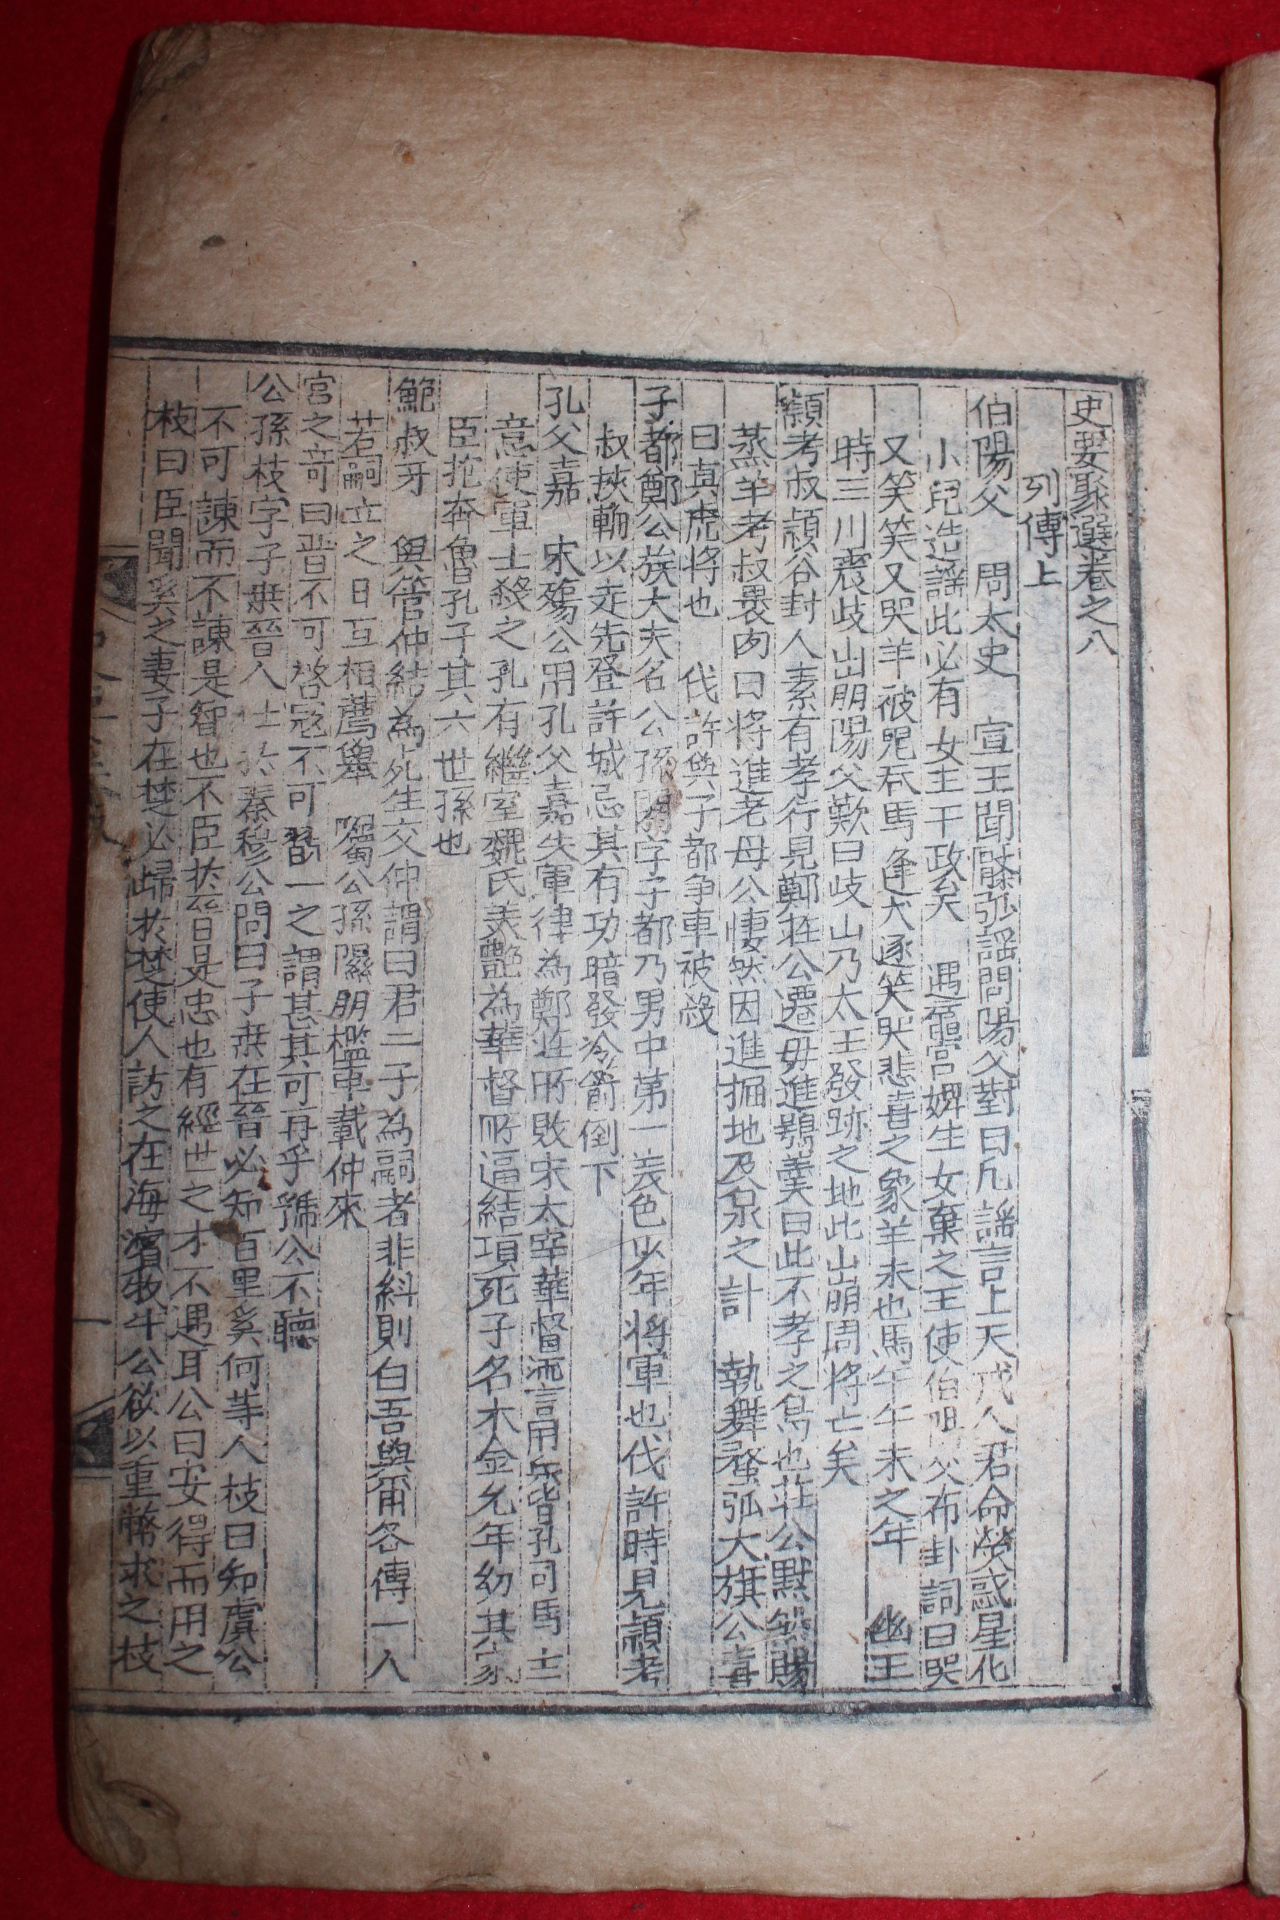 史要聚選卷之八
列傳上
伯陽父 周太史 宣王聞檿弧謠問陽父對曰凡謠言上天戒人君命熒惑星化
小兒造謠此必有女主干政矣 遇龍宮婢生女棄之王使伯陽父布卦詞曰哭
又笑笑又哭羊被鬼吞馬逢犬逐笑哭悲喜之象羊未也馬午午未之年 幽王
時三川震歧山崩陽父歎曰歧山乃太王發跡之地此山崩周將亡矣
潁考叔潁谷封人素有孝行見鄭莊公遷母進鴞羹曰此不孝之鳥也莊公默然賜
蒸羊考叔畏肉曰將進老母公悽然因進掘地及泉之計 執舞蝥弧大旗公喜
曰真虎將也 伐許與子都爭車被殺
子都鄭公族大夫名公孫閼字子都乃男中第一美色少年將軍也伐許時見潁考
叔挾輈以走先登許城忌其有功暗發冷箭倒下
孔父嘉 宋殤公用孔父嘉失軍律為鄭莊所敗宋太宰華督流言用兵皆孔司馬主
意使軍士殺之孔有繼室魏氏美艷為華督所逼結項死子名木金允年幼其家
臣抱奔魯孔子其六世孫也
鮑叔牙 與管仲結為死生交仲謂曰君二子為嗣者非糾則白吾與爾各傳一人
若嗣立之日互相薦舉 囑公孫隰朋檻車載仲來
宮之奇曰晋不可啓寇不可翫一之謂甚其可再乎虢公不聽
公孫枝字子桒晉人仕於秦穆公問曰子桒在晉必知百里奚何等人枝曰知虞公
不可諫而不諫是智也不臣於晉是忠也有經世之才不遇耳公曰安得而用之
枝曰臣聞奚之妻子在楚必歸於楚使人訪之在海濱牧牛公欲以重幣求之枝
一